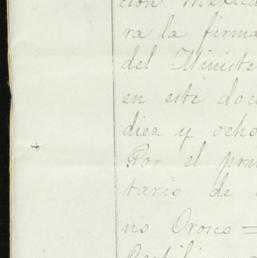 ción Mexica
ra la firma
del Ministe
en este doc
diez y ocho
Por el pres
tario de
no Orozco =